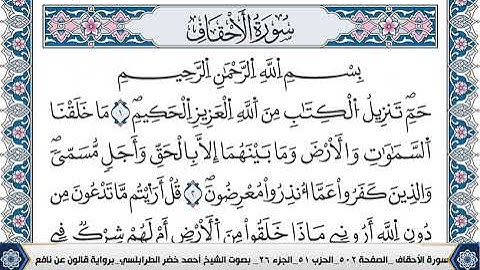 سُورَةُ الْأَحْقَافِ
بِسْمِ اللَّهِ الرَّحْمَٰنِ الرَّحِيمِ
حَمٓ تَنزِيلُ الْكِتَٰبِ مِنَ اللَّهِ الْعَزِيزِ الْحَكِيمِ ۝١ مَا خَلَقْنَا
السَّمَٰوَٰتِ وَالْأَرْضَ وَمَا بَيْنَهُمَا إِلَّا بِالْحَقِّ وَأَجَلٍ مُّسَمًّى
وَالَّذِينَ كَفَرُوا عَمَّا أُنذِرُوا مُعْرِضُونَ ۝٢ قُلْ أَرَٰيْتُم مَّا تَدْعُونَ مِن
دُونِ اللَّهِ أَرُونِي مَاذَا خَلَقُوا مِنَ الْأَرْضِ أَمْ لَهُمْ شِرْكٌ فِي
سورة الأحقاف _الصفحة ٥٠٢_ الحزب ٥١_ الجزء ٢٦_ بصوت الشيخ أحمد خضر الطرابلسي_ برواية قالون عن نافع